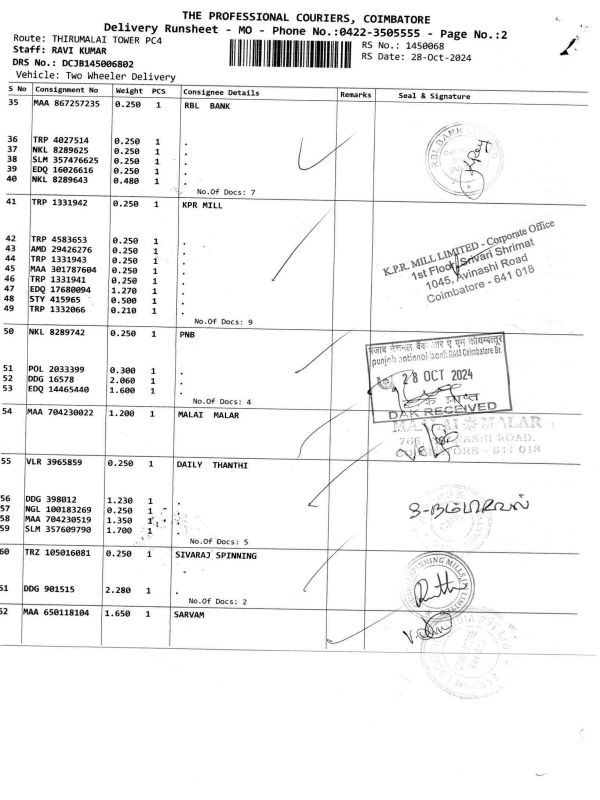 THE PROFESSIONAL COURIERS, COIMBATORE
Delivery Runsheet - MO - Phone No.:0422-3505555 - Page No.:2
Route: THIRUMALAI TOWER PC4
Staff: RAVI KUMAR
DRS No.: DCJB145006802
Vehicle: Two Wheeler Delivery
RS No.: 1450068
RS Date: 28-Oct-2024
S No Consignment No Weight PCS Consignee Details Remarks Seal & Signature
35 MAA 867257235 0.250 1 RBL BANK
36 TRP 4027514 0.250 1 .
37 NKL 8289625 0.250 1 .
38 SLM 357476625 0.250 1 .
39 EDQ 16026616 0.250 1 .
40 NKL 8289643 0.480 1 .
No.Of Docs: 7
RBL BANK
41 TRP 1331942 0.250 1 KPR MILL
42 TRP 4583653 0.250 1 .
43 AMD 29426276 0.250 1 .
44 TRP 1331943 0.250 1 .
45 MAA 301787604 0.250 1 .
46 TRP 1331941 0.250 1 .
47 EDQ 17680094 1.270 1 .
48 STY 415965 0.500 1 .
49 TRP 1332066 0.210 1 .
No.Of Docs: 9
K.P.R. MILL LIMITED - Corporate Office
1st Floor, Srivari Shrimat
1045, Avinashi Road
Coimbatore - 641 018
50 NKL 8289742 0.250 1 PNB
51 POL 2033399 0.300 1 .
52 DDG 16578 2.060 1 .
53 EDQ 14465440 1.600 1 .
No.Of Docs: 4
punjab national bank
28 OCT 2024
DAK RECEIVED
54 MAA 704230022 1.200 1 MALAI MALAR
MALAI MALAR
ROAD,
641 018
55 VLR 3965859 0.250 1 DAILY THANTHI
56 DDG 398012 1.230 1 .
57 NGL 100183269 0.250 1 .
58 MAA 704230519 1.350 1 .
59 SLM 357609790 1.700 1 .
No.Of Docs: 5
60 TRZ 105016081 0.250 1 SIVARAJ SPINNING
61 DDG 901515 2.280 1
No.Of Docs: 2
SPINNING MILLS
62 MAA 650118104 1.650 1 SARVAM